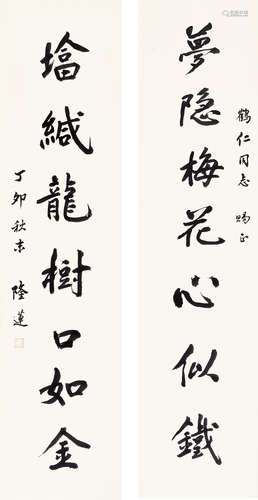 鹤仁同志 赐正
夢隐梅花心似鐵
塔緘龍樹口如金
丁卯秋末 陸蓮